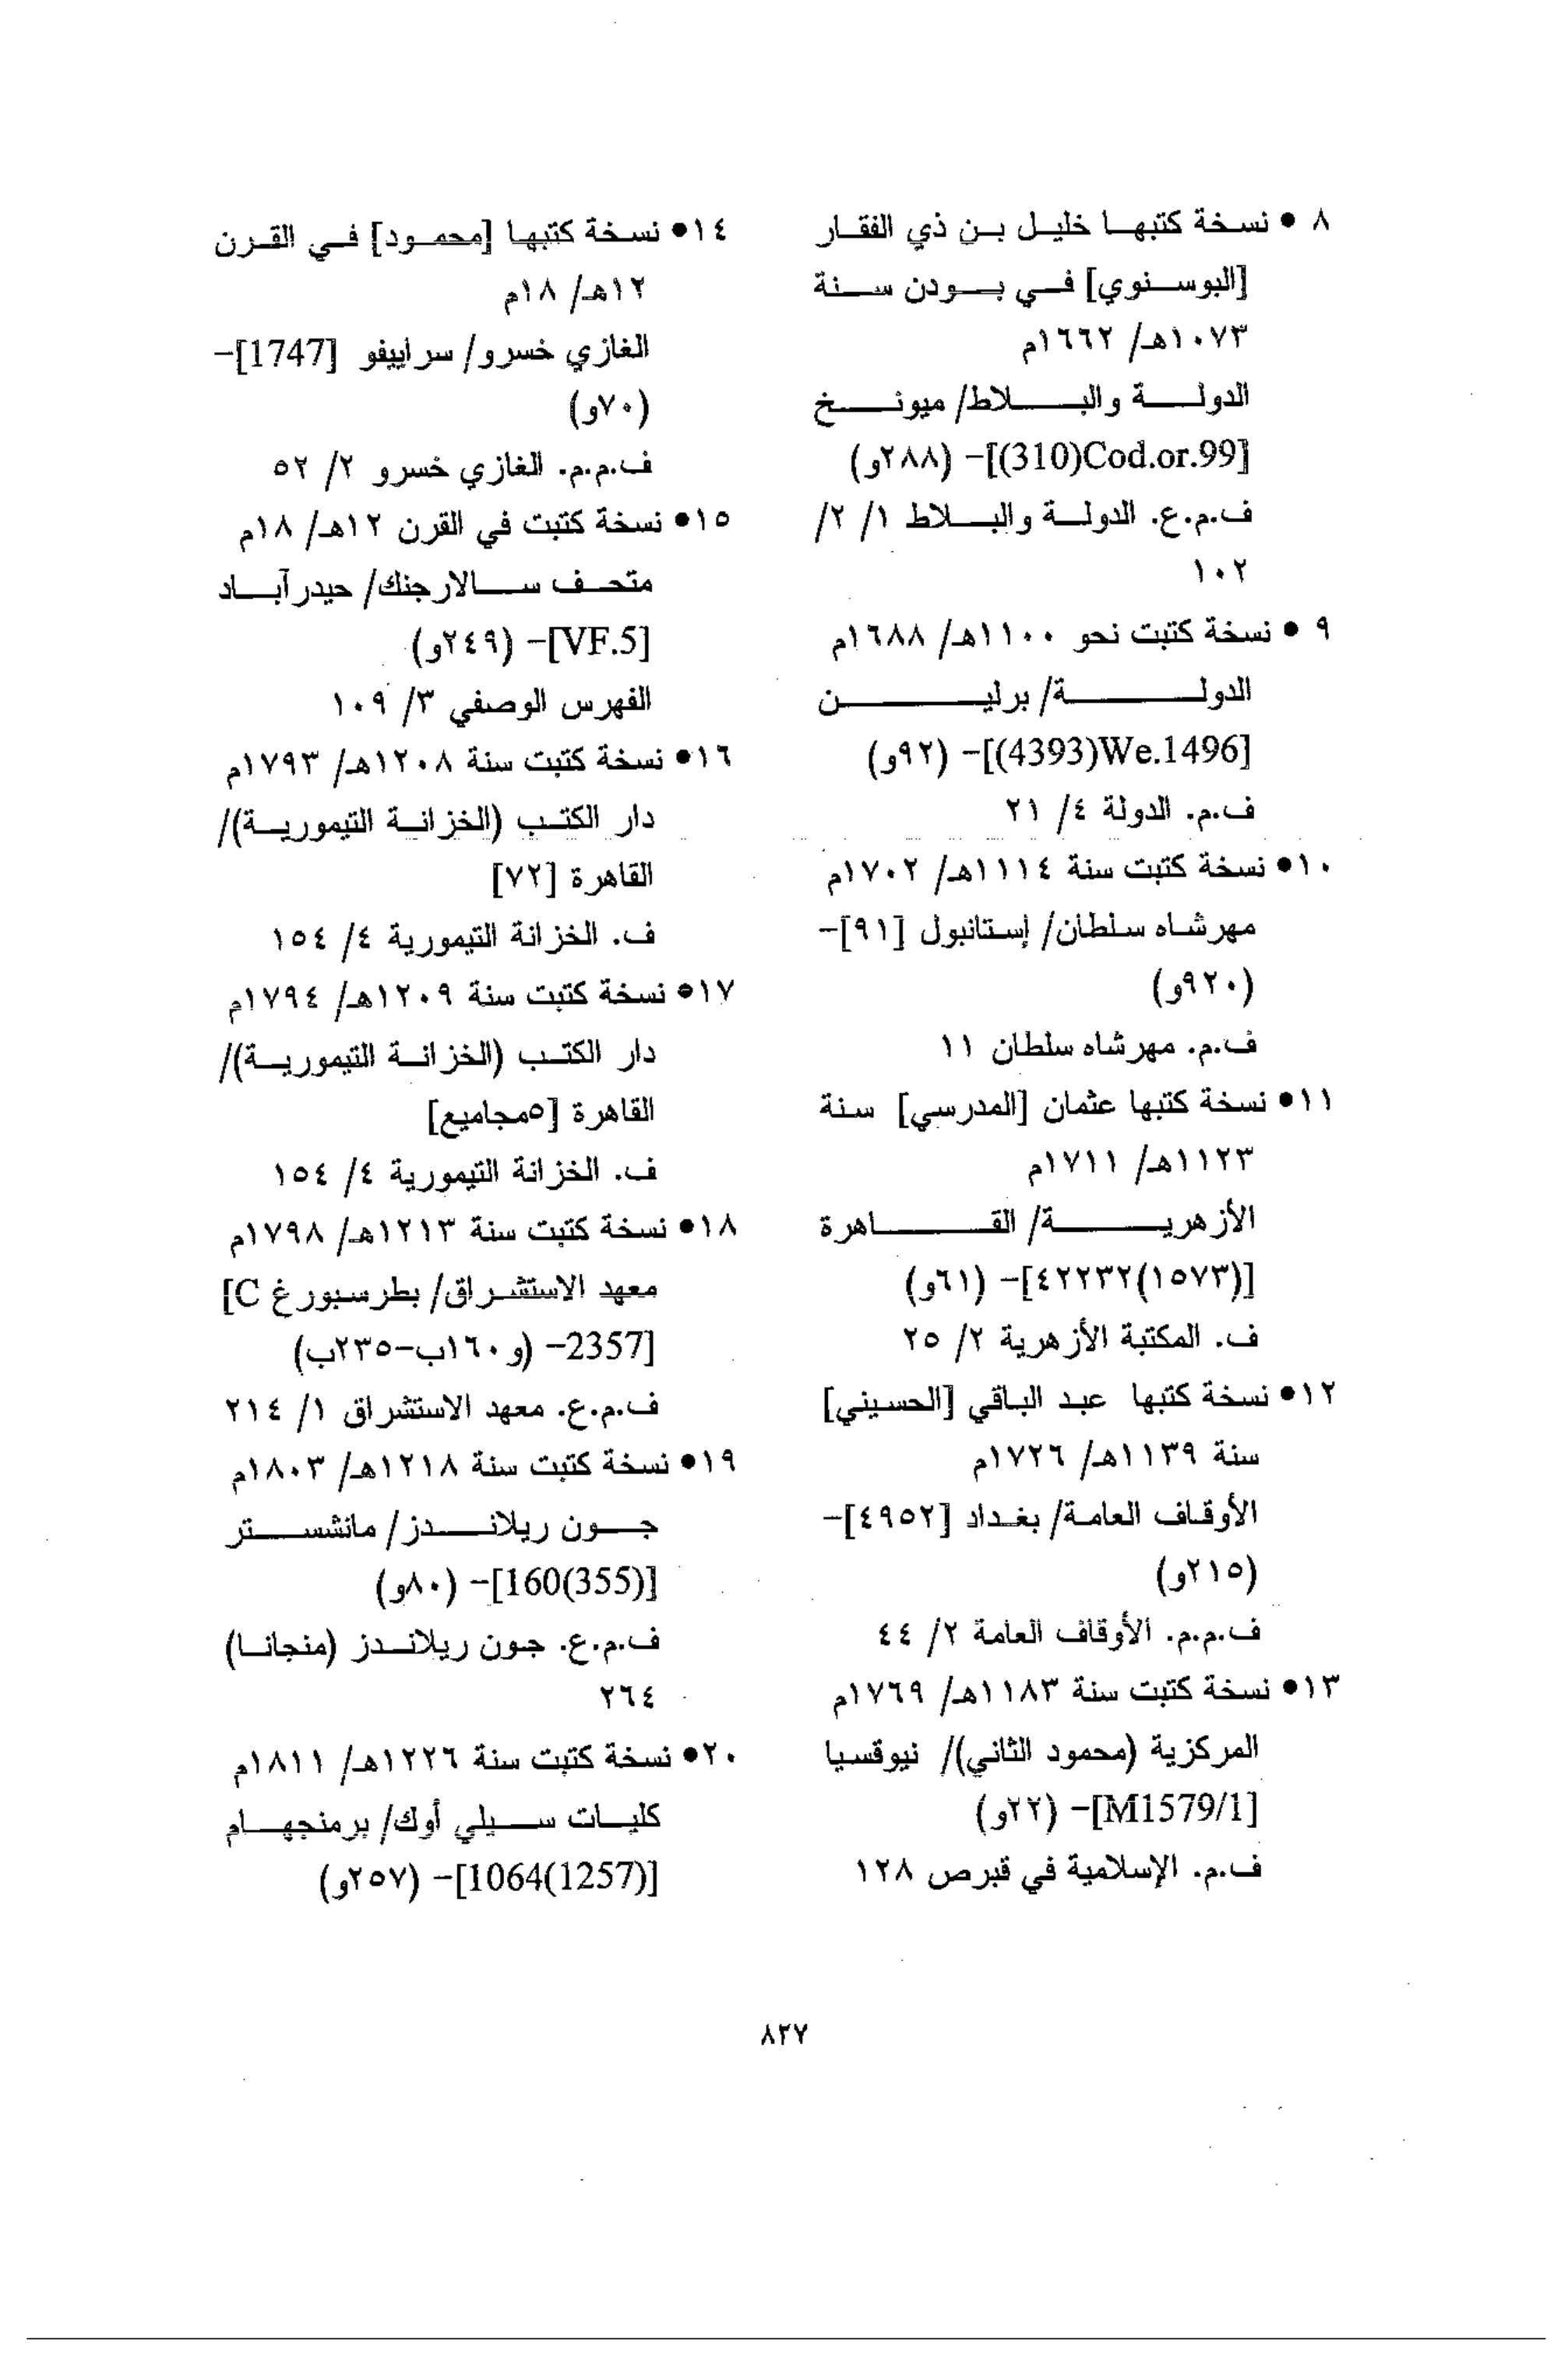 ٨ • نسخة كتبها خليل بن ذي الفقار
[البوسنوي] في بودن سنة
١٠٧٣هـ/ ١٦٦٢م
الدولة والبلاط/ ميونخ
[Cod.or.99(310)]- (٢٨٨و)
ف.م.ع. الدولة والبلاط ١/ ٢/
١٠٢
٩ • نسخة كتبت نحو ١١٠٠هـ/ ١٦٨٨م
الدولة/ برلين
[We.1496(4393)]- (٩٢و)
ف.م. الدولة ٤/ ٢١
١٠• نسخة كتبت سنة ١١١٤هـ/ ١٧٠٢م
مهرشاه سلطان/ إستانبول [٩١]-
(٩٢٠و)
ف.م. مهرشاه سلطان ١١
١١• نسخة كتبها عثمان [المدرسي] سنة
١١٢٣هـ/ ١٧١١م
الأزهرية/ القاهرة
[(١٥٧٣)٤٢٢٣٢]- (٦١و)
ف. المكتبة الأزهرية ٢/ ٢٥
١٢• نسخة كتبها عبد الباقي [الحسيني]
سنة ١١٣٩هـ/ ١٧٢٦م
الأوقاف العامة/ بغداد [٤٩٥٢]-
(٢١٥و)
ف.م.م. الأوقاف العامة ٢/ ٤٤
١٣• نسخة كتبت سنة ١١٨٣هـ/ ١٧٦٩م
المركزية (محمود الثاني)/ نيوقسيا
[M1579/1]- (٢٢و)
ف.م. الإسلامية في قبرص ١٢٨
١٤• نسخة كتبها [محمود] في القرن
١٢هـ/ ١٨م
الغازي خسرو/ سراييفو [1747]-
(٧٠و)
ف.م.م. الغازي خسرو ٢/ ٥٢
١٥• نسخة كتبت في القرن ١٢هـ/ ١٨م
متحف سالارجنك/ حيدرآباد
[VF.5]- (٢٤٩و)
الفهرس الوصفي ٣/ ١٠٩
١٦• نسخة كتبت سنة ١٢٠٨هـ/ ١٧٩٣م
دار الكتب (الخزانة التيمورية)/
القاهرة [٧٢]
ف. الخزانة التيمورية ٤/ ١٥٤
١٧• نسخة كتبت سنة ١٢٠٩هـ/ ١٧٩٤م
دار الكتب (الخزانة التيمورية)/
القاهرة [٥مجاميع]
ف. الخزانة التيمورية ٤/ ١٥٤
١٨• نسخة كتبت سنة ١٢١٣هـ/ ١٧٩٨م
معهد الاستشراق/ بطرسبورغ [C
2357]- (و١٦٠ب-٢٣٥ب)
ف.م.ع. معهد الاستشراق ١/ ٢١٤
١٩• نسخة كتبت سنة ١٢١٨هـ/ ١٨٠٣م
جون ريلاندز/ مانشستر
[160(355)]- (٨٠و)
ف.م.ع. جون ريلاندز (منجانا)
٢٦٤
٢٠• نسخة كتبت سنة ١٢٢٦هـ/ ١٨١١م
كليات سيلي أوك/ برمنجهام
[1064(1257)]- (٢٥٧و)
٨٢٧